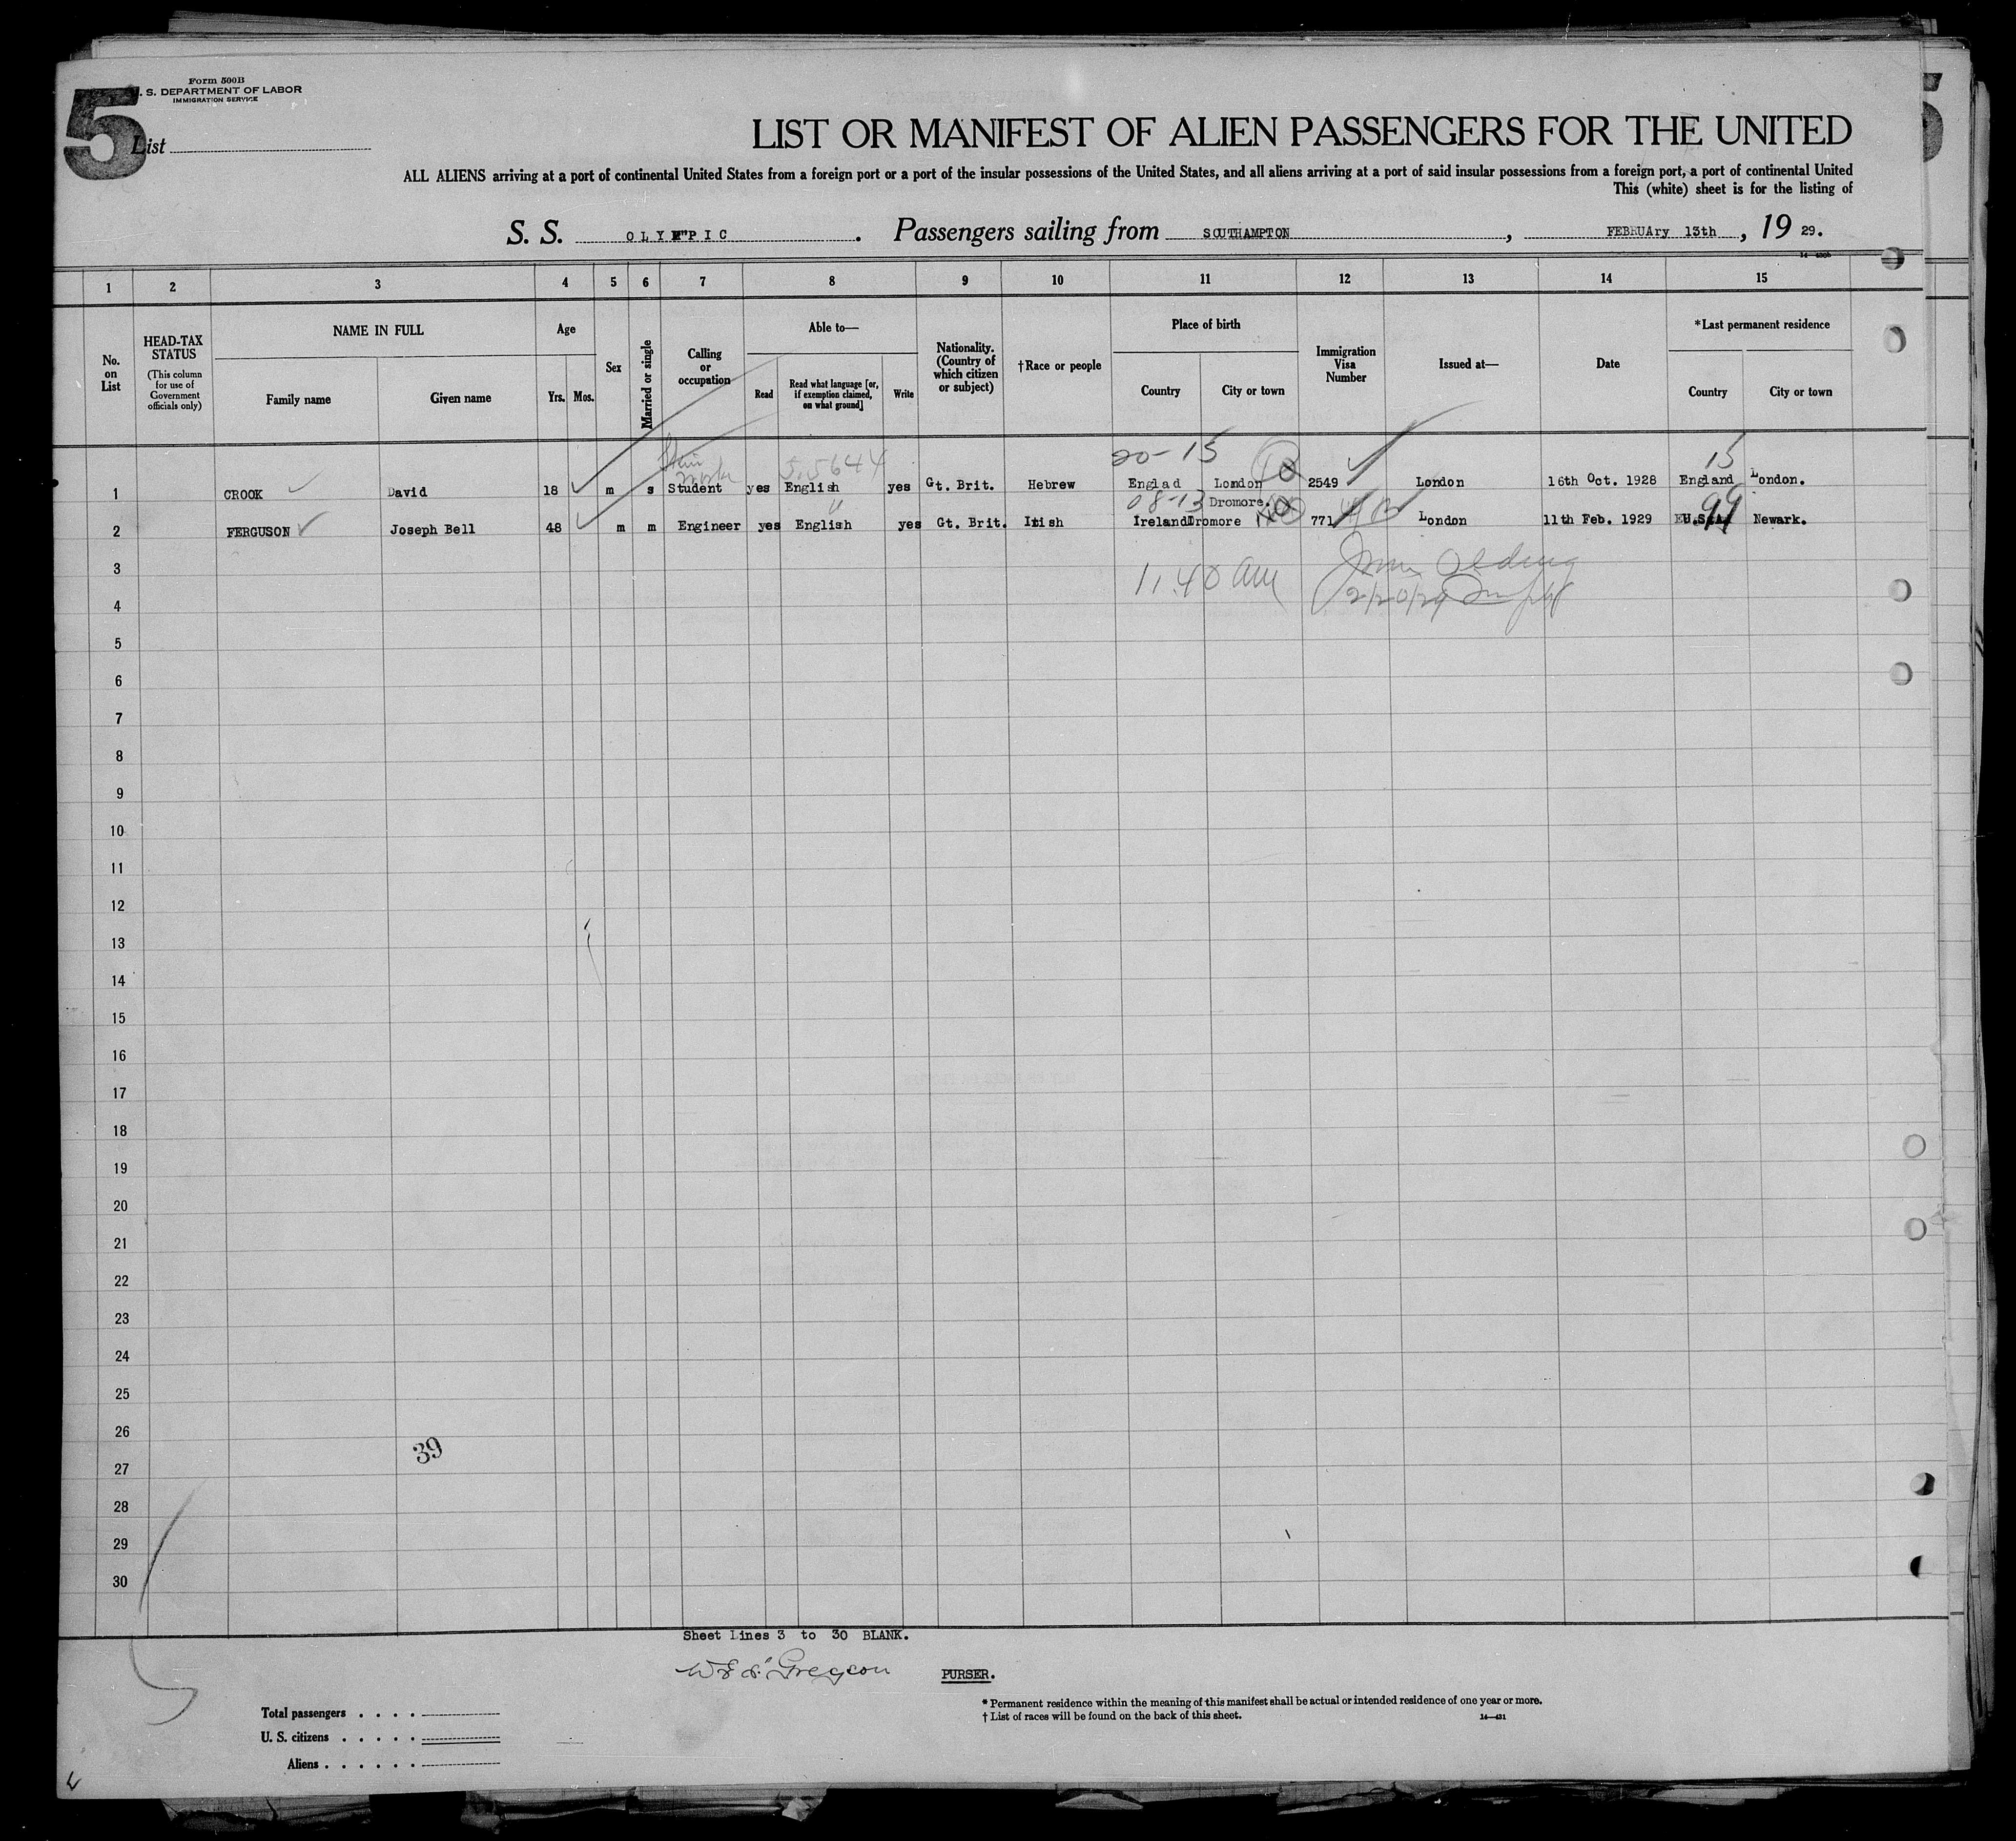 5
Form 500B
. S. DEPARTMENT OF LABOR
IMMIGRATION SERVICE
List
LIST OR MANIFEST OF ALIEN PASSENGERS FOR THE UNITED
ALL ALIENS arriving at a port of continental United States from a foreign port or a port of the insular possessions of the United States, and all aliens arriving at a port of said insular possessions from a foreign port, a port of continental United
This (white) sheet is for the listing of
S. S. OLYMPIC. Passengers sailing from SOUTHAMPTON, FEBRUAry 13th, 19 29.
1 2 3 4 5 6 7 8 9 10 11 12 13 14 15
No. on List
HEAD-TAX STATUS
(This column for use of Government officials only)
NAME IN FULL
Family name Given name
Age
Yrs. Mos.
Sex
Married or single
Calling or occupation
Able to—
Read Read what language [or, if exemption claimed, on what ground] Write
Nationality. (Country of which citizen or subject)
†Race or people
Place of birth
Country City or town
Immigration Visa Number
Issued at—
Date
*Last permanent residence
Country City or town
20-15 15
1 CROOK David 18 m s Student yes English yes Gt. Brit. Hebrew Englad London 2549 London 16th Oct. 1928 England London.
08-13 Dromore. 99
2 FERGUSON Joseph Bell 48 m m Engineer yes English yes Gt. Brit. Irish Ireland Dromore 771 London 11th Feb. 1929 U.S.A. Newark.
3
11.40 am
2/20/29
4
5
6
7
8
9
10
11
12
13
14
15
16
17
18
19
20
21
22
23
24
25
26
39
27
28
29
30
Sheet Lines 3 to 30 BLANK.
Gregson PURSER.
* Permanent residence within the meaning of this manifest shall be actual or intended residence of one year or more.
† List of races will be found on the back of this sheet. 14—431
Total passengers . . . .
U. S. citizens . . . . .
Aliens . . . . . .